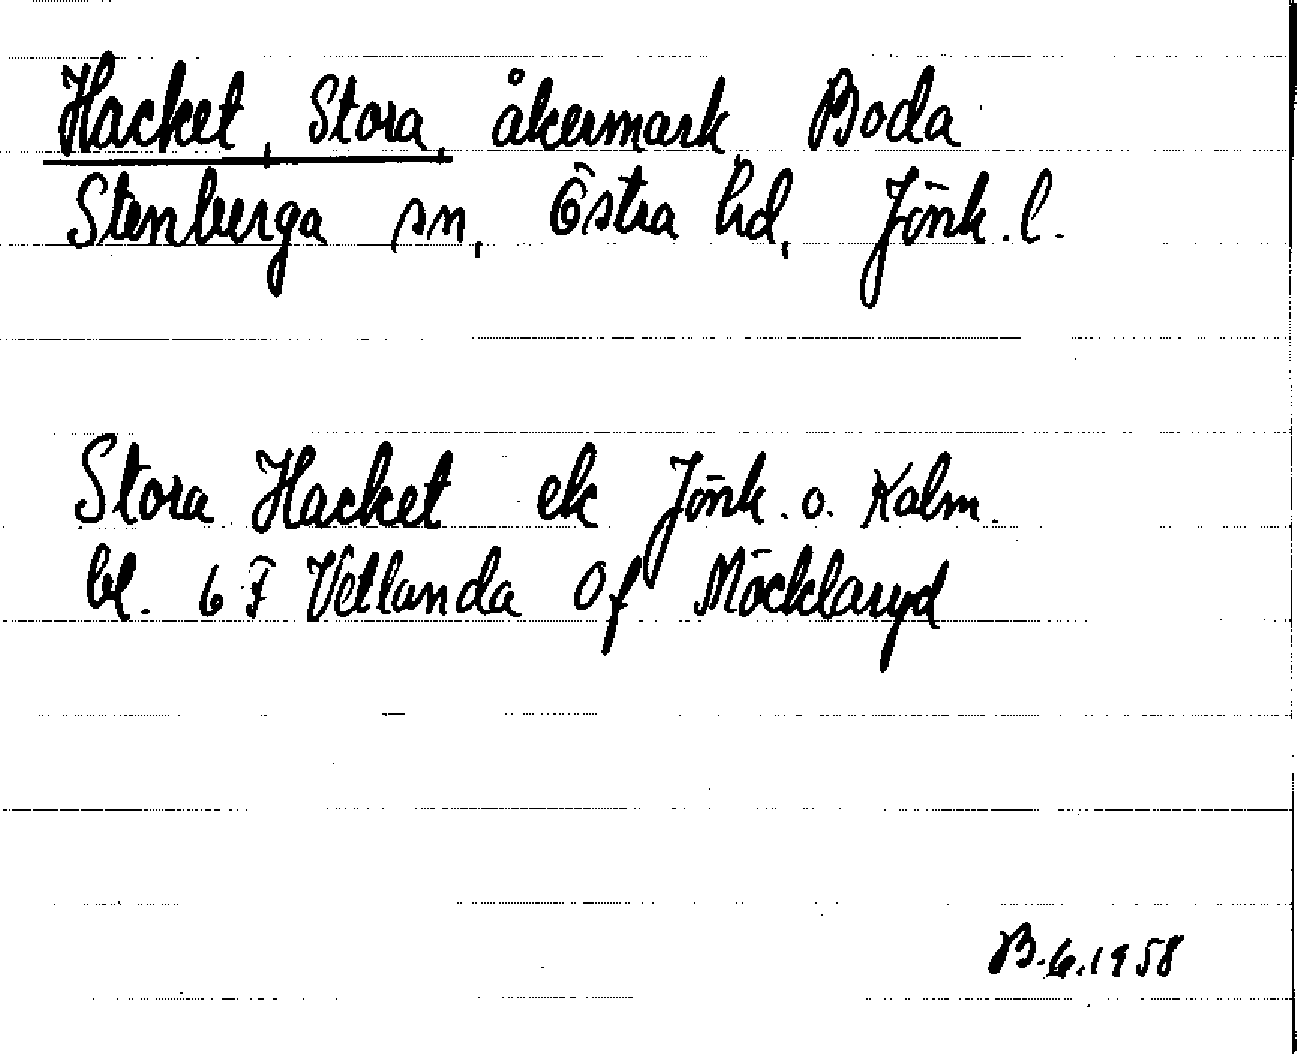 Hacket, Stora, åkermark, Boda
Stenberga sn, Östra hd, Jönk. l.
Stora Hacket ek Jönk. o. Kalm.
bl. 6 F Vetlanda Of Möcklaryd
B.G.1958